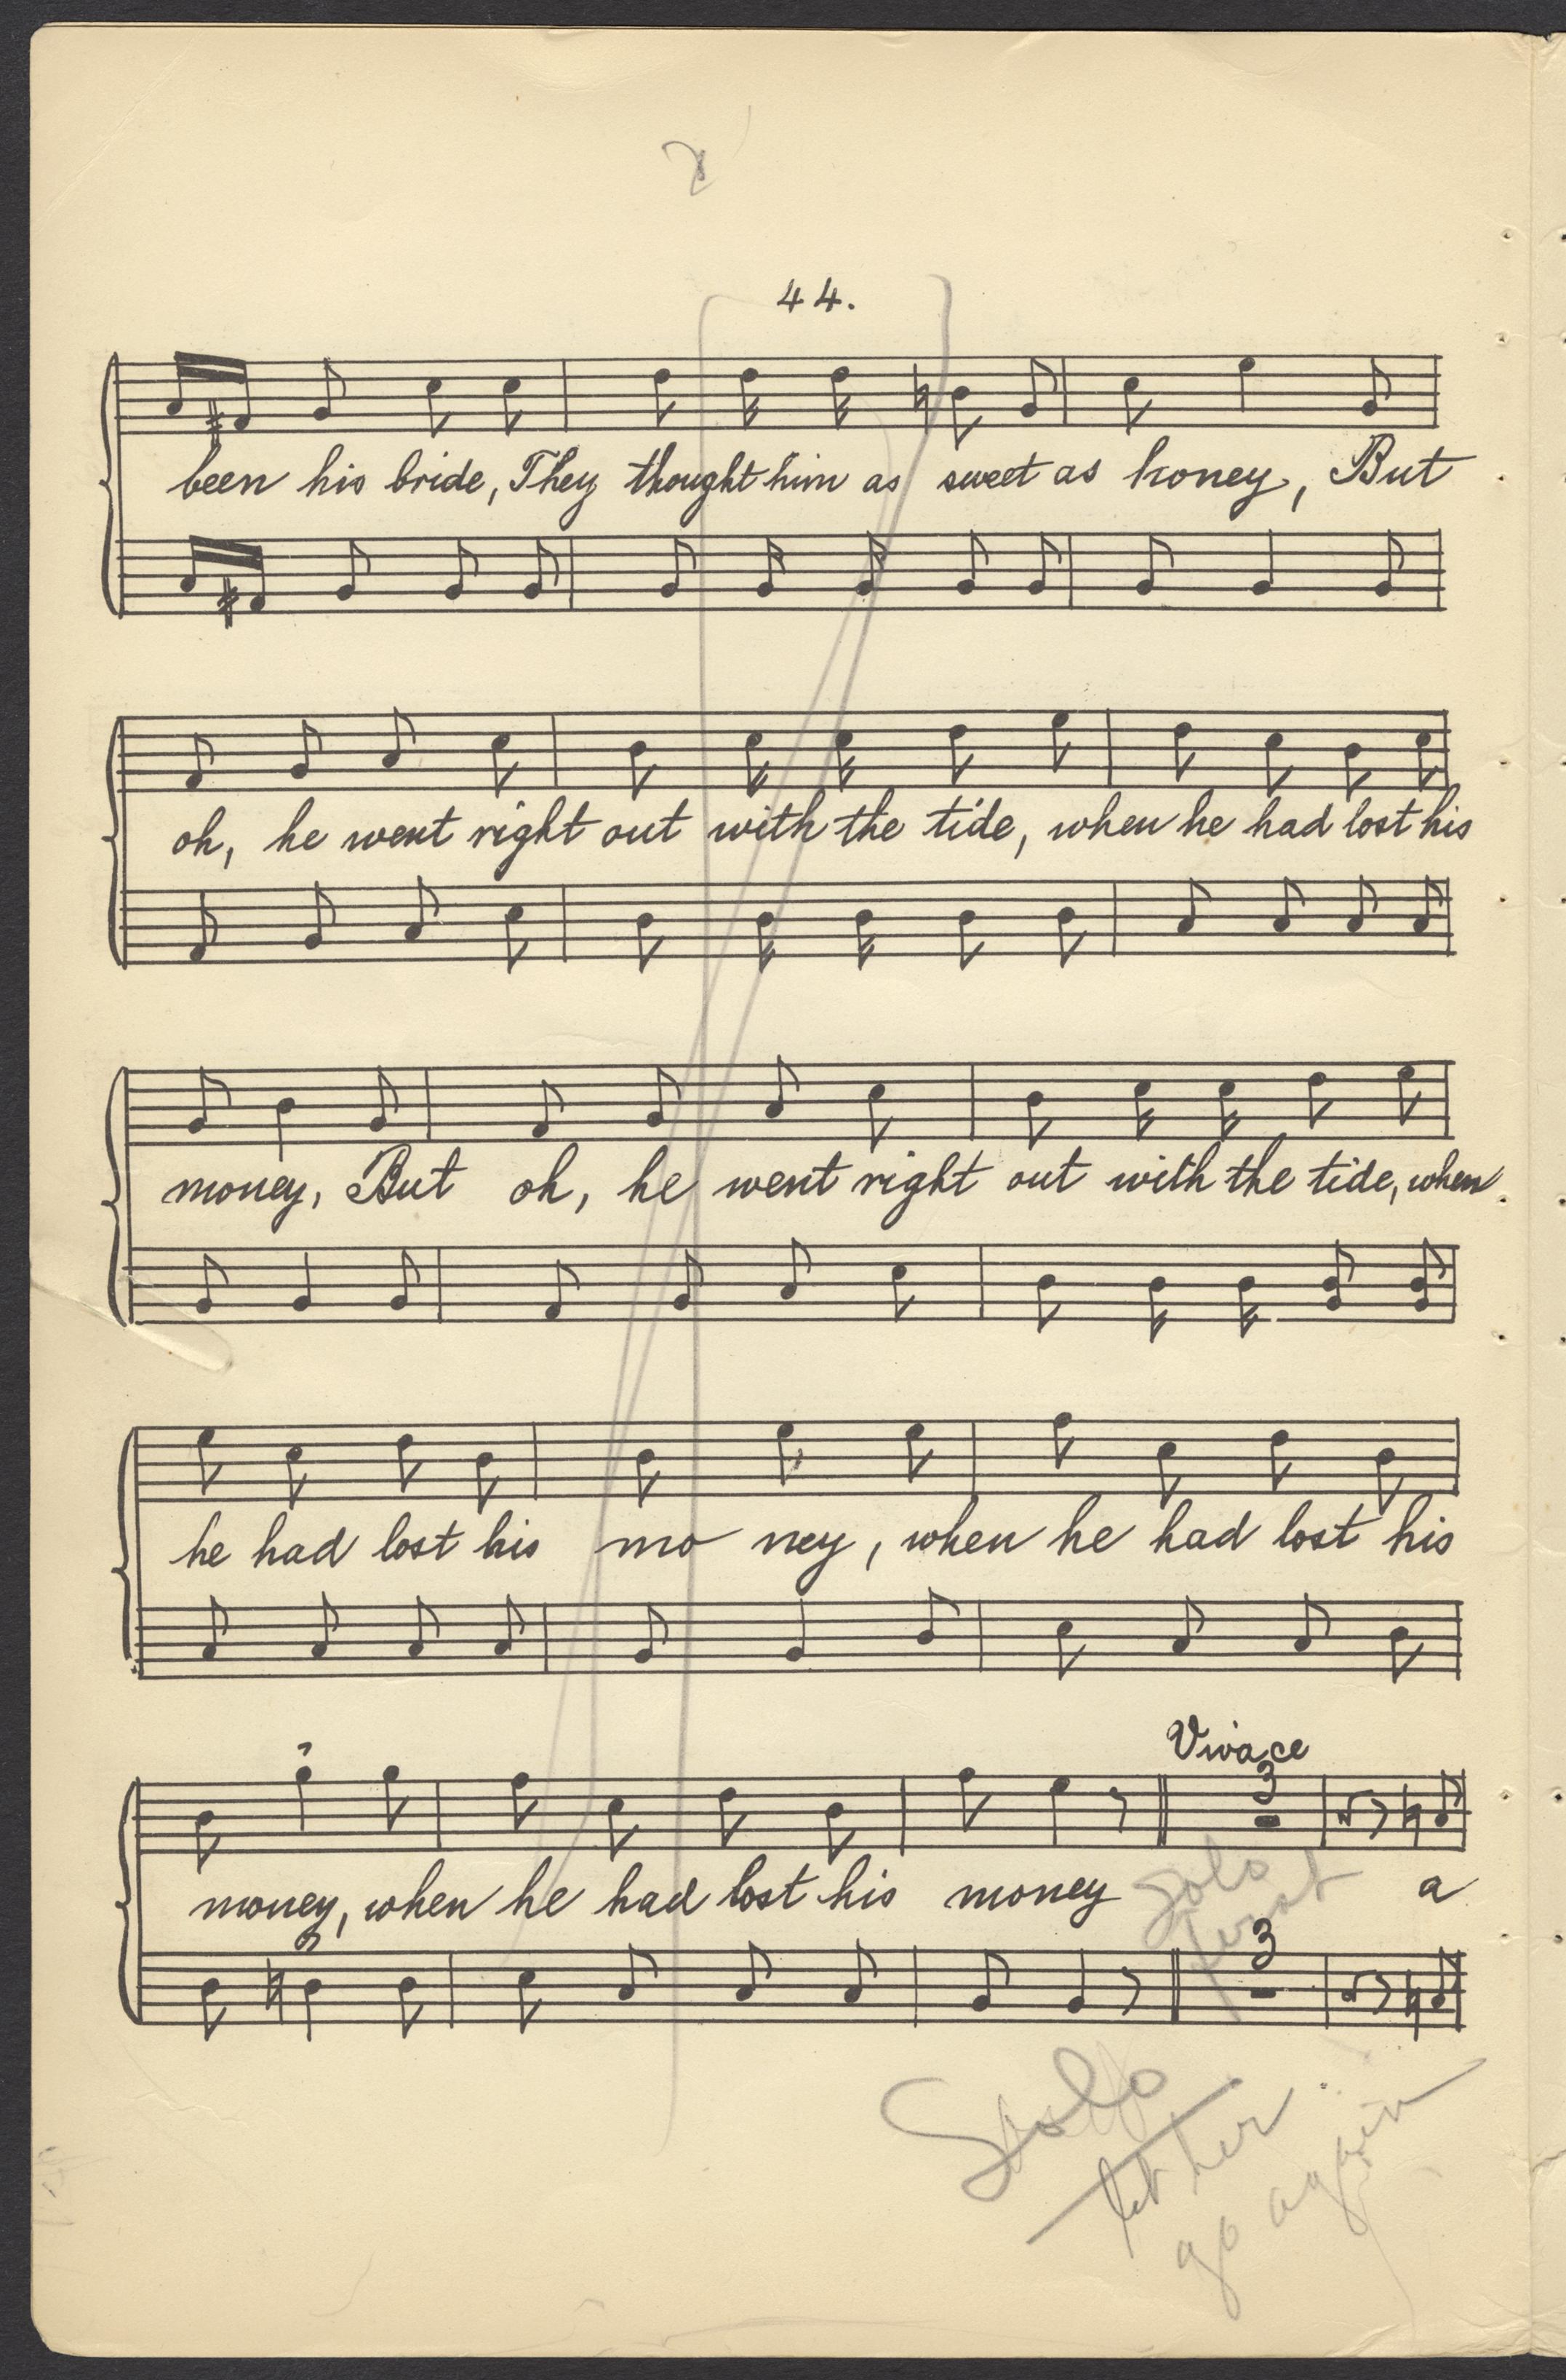 44.
been his bride, They thought him as sweet as honey, But
oh, he went right out with the tide, when he had lost his
money, But oh, he went right out with the tide, when
he had lost his mo ney, when he had lost his
Vivace
3
money, when he had lost his money a
Solo
3
Solo
let her
go again